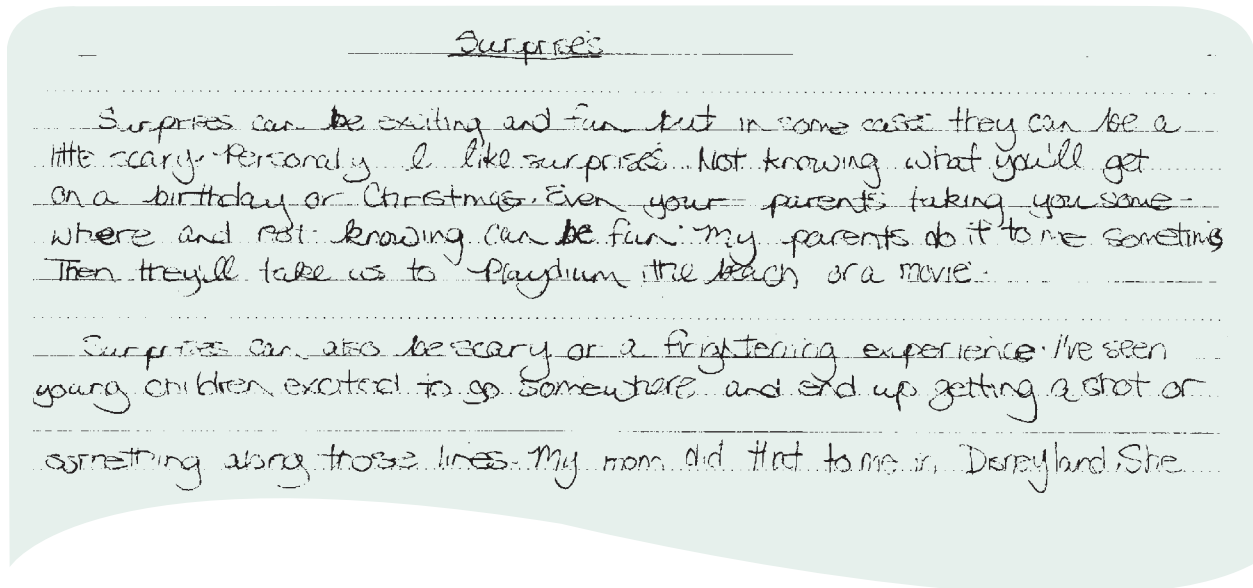 Surprises
Surprises can be exiting and fun but in some cases they can be a
little scary. Personaly I like surprises. Not knowing what you'll get
on a birthday or Christmas. Even your parents taking you some-
where and not knowing can be fun. My parents do it to me sometims
Then they'll take us to Playdium, the beach, or a movie.
Surprises can also be scary or a frightening experience. I've seen
young children excited to go somewhere and end up getting a shot or
something along those lines. My mom did that to me in Disneyland. She